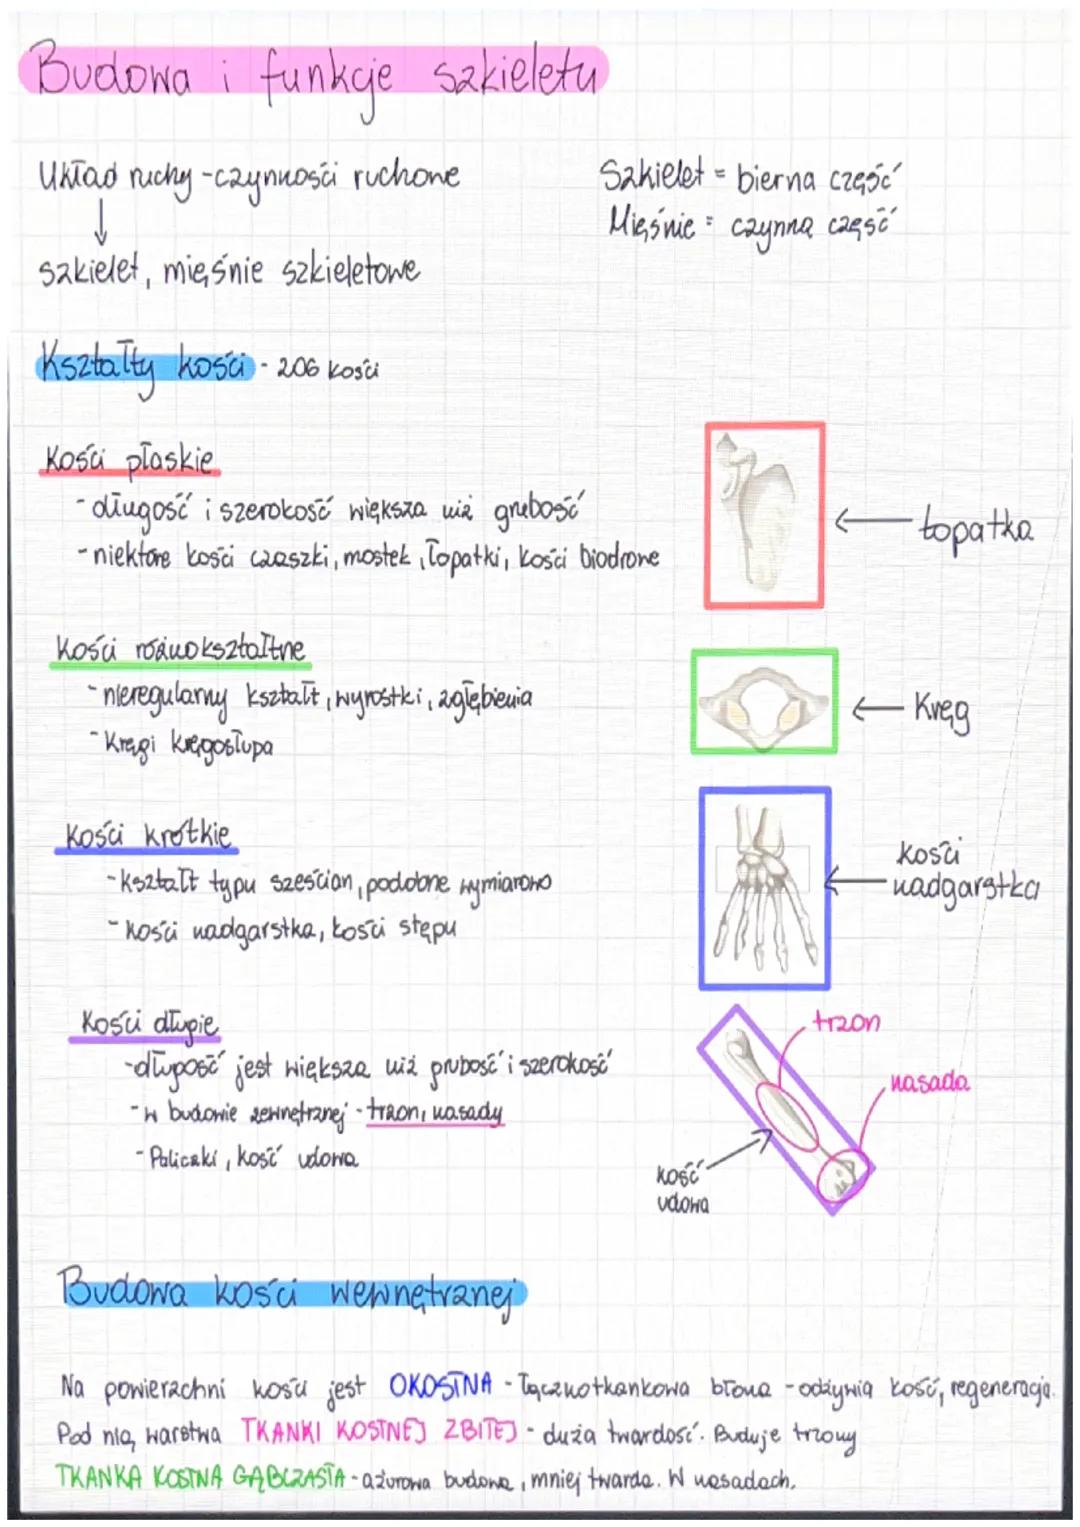 Budowa i funkcje szkieletu
Układ ruchy - czynności ruchowe
↓
szkielet, mięśnie szkieletowe
Szkielet = bierna część
Mięśnie = czynna część
Kształty kości - 206 kości
Kości płaskie
- długość i szerokość większa niż grubość
- niektóre kości czaszki, mostek, łopatki, kości biodrowe
← łopatka
Kości różnokształtne
- nieregularny kształt, wyrostki, zgłębienia
- Kręgi kręgosłupa
← Kręg
Kości krótkie
- kształt typu sześcian, podobne wymiarowo
- kości nadgarstka, kości stępu
← kości
nadgarstka
Kości długie
- długość jest większa niż grubość i szerokość
- w budowie zewnętrznej - trzon, nasady
- Paliczki, kość udowa
trzon
nasada
kość
udowa
Budowa kości wewnętrznej
Na powierzchni kości jest OKOSTNA - łącznotkankowa błona - odżywia kość, regeneracja.
Pod nią, warstwa TKANKI KOSTNEJ ZBITEJ - duża twardość. Buduje trzony
TKANKA KOSTNA GĄBCZASTA - ażurowa budowa, mniej twarda. W nasadach.